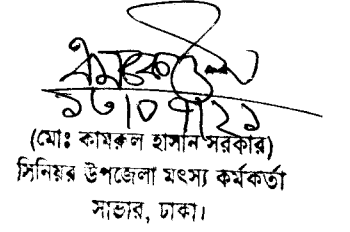 ১৩/০৭/২১
(মোঃ কামরুল হাসান সরকার)
সিনিয়র উপজেলা মৎস্য কর্মকর্তা
সাভার, ঢাকা।